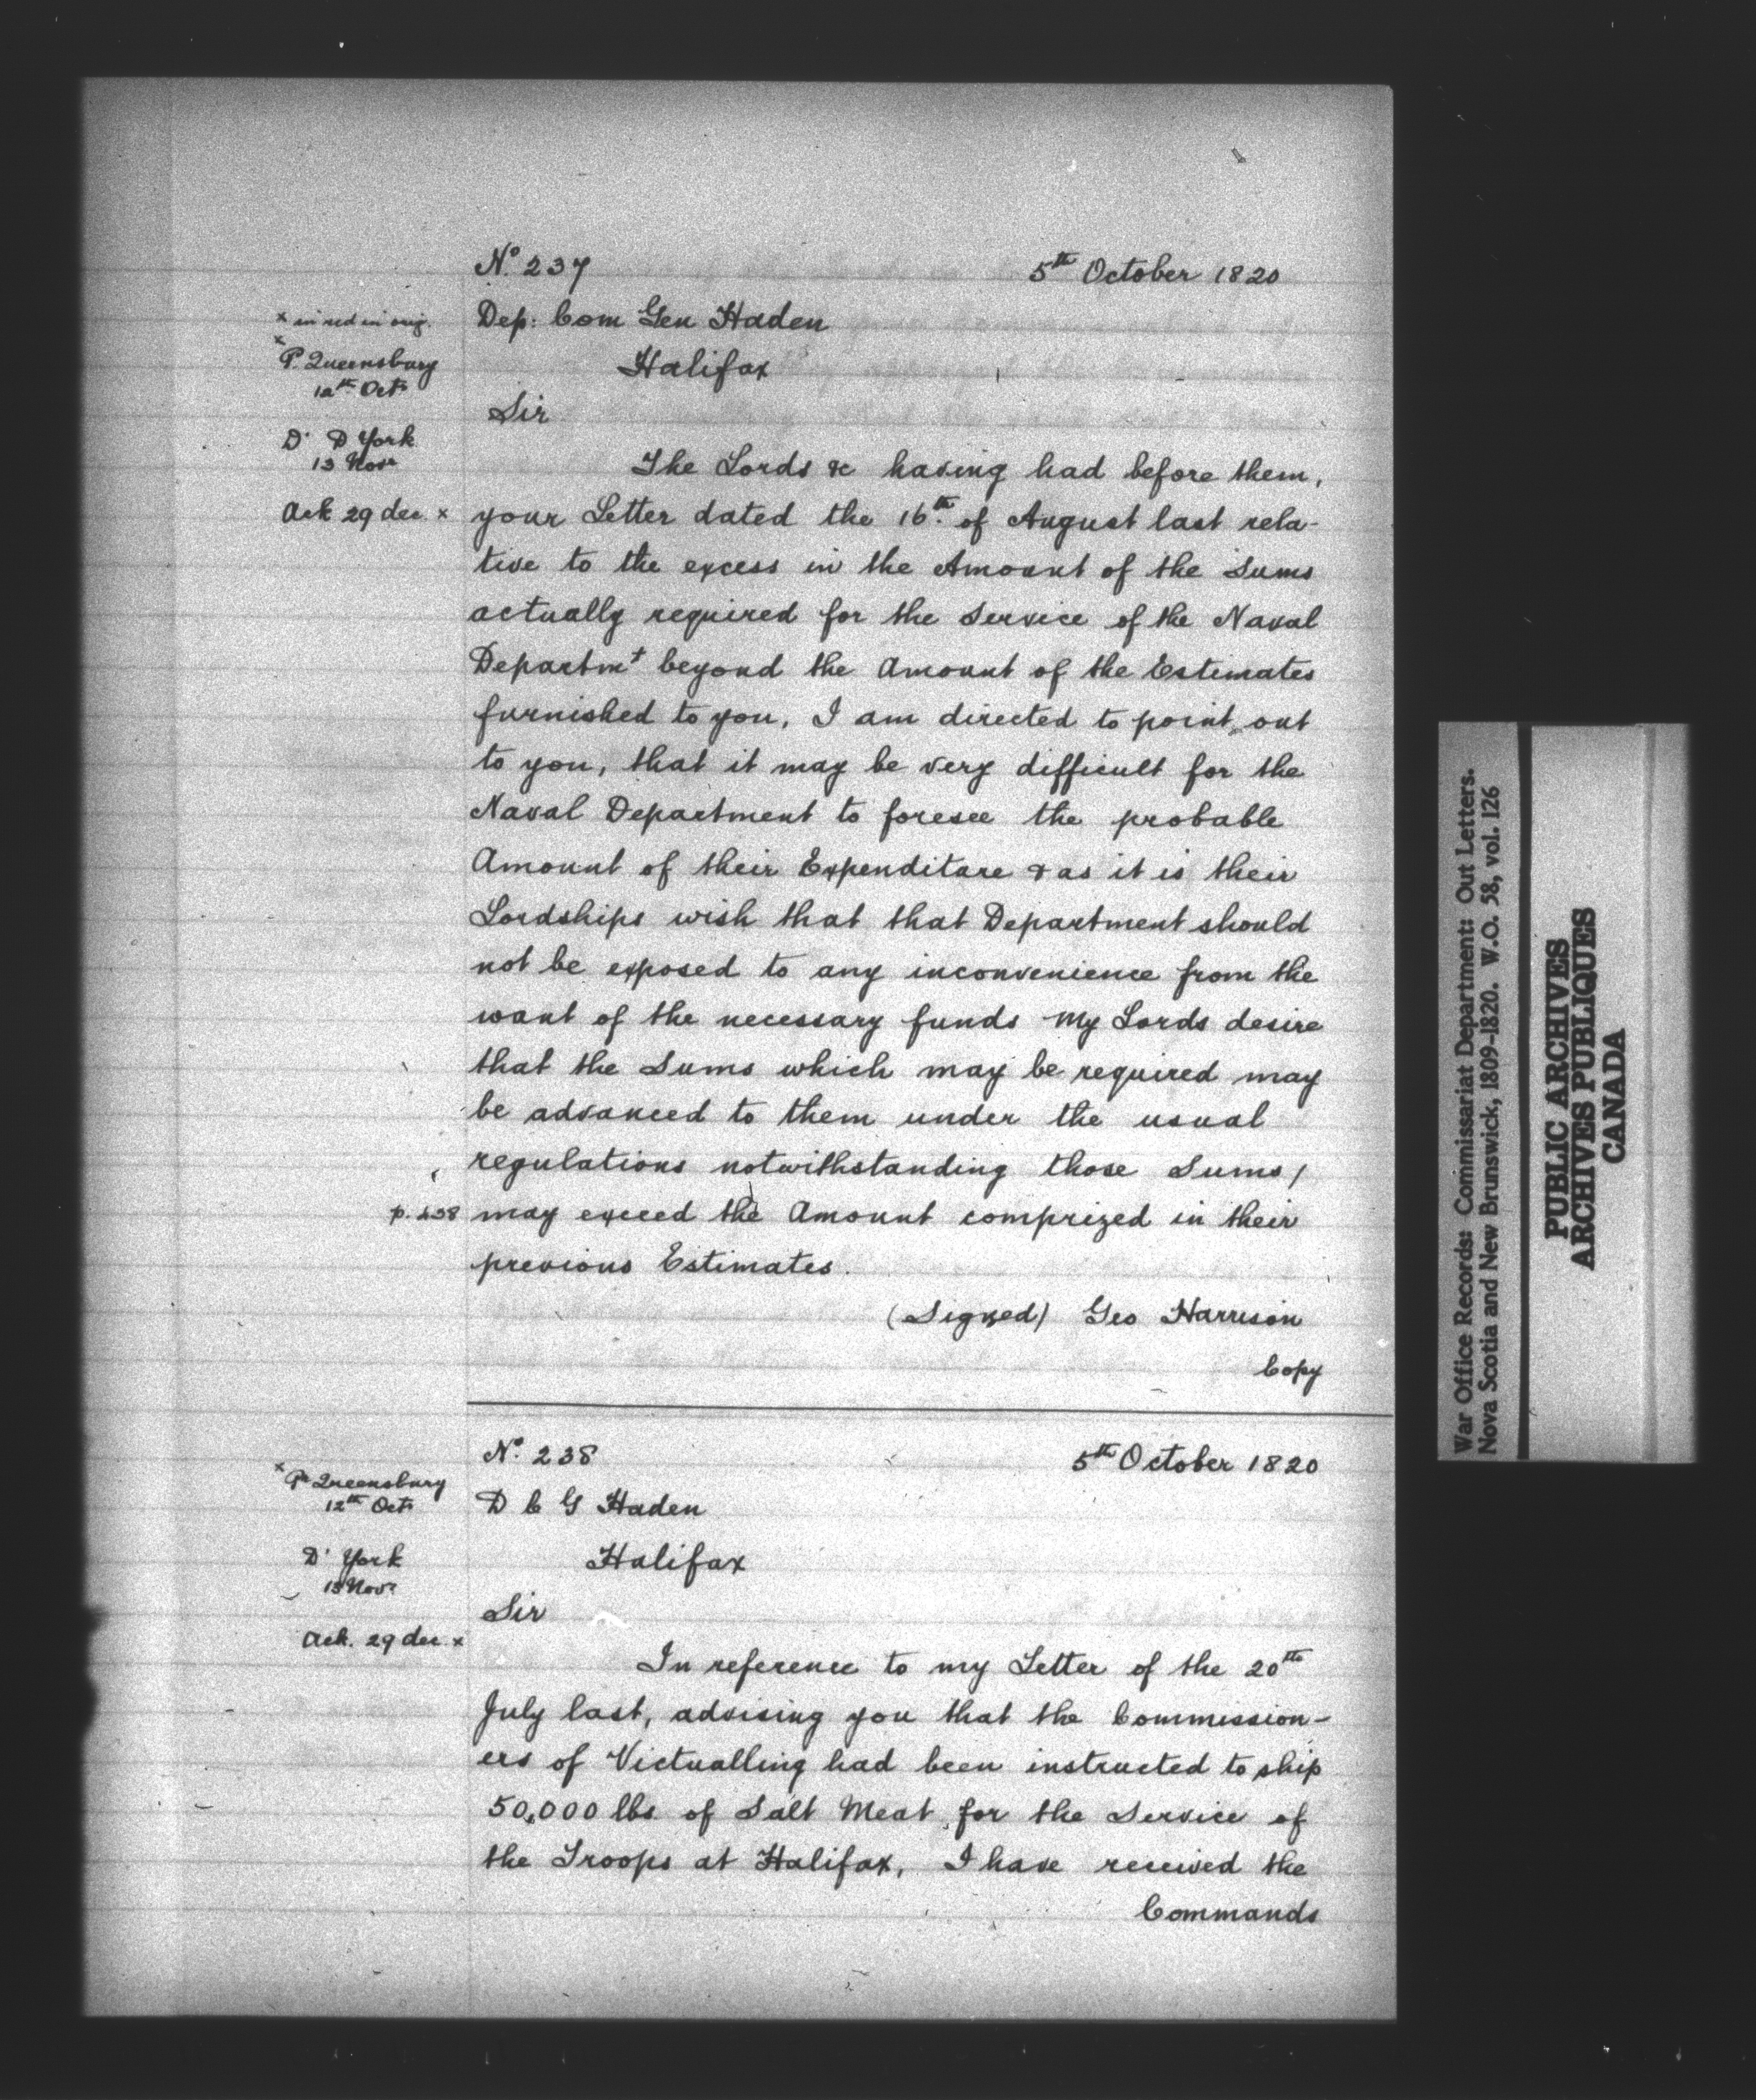 No. 237 5th October 1820
x in red in orig.
Dep: Com Gen Haden
x
P. Queensbury
12th Octr
Halifax
Sir
Dº D York
13 Novr
The Lords &c having had before them,
Ack 29 dec. x
your Letter dated the 16th. of August last rela-
tive to the excess in the Amount of the Sums
actually required for the Service of the Naval
Departmt beyond the Amount of the Estimates
furnished to you, I am directed to point out
to you, that it may be very difficult for the
Naval Department to foresee the probable
Amount of their Expenditure & as it is their
Lordships wish that that Department should
not be exposed to any inconvenience from the
want of the necessary funds My Lords desire
that the Sums which may be required may
be advanced to them under the usual
regulations notwithstanding those Sums /
p. 438
may exceed the Amount comprized in their
previous Estimates.
(Signed) Geo Harrison
Copy
No. 238 5th October 1820
x
Pr Queensbury
12th Octr
D C G Haden
Dº York
13 Novr
Halifax
Sir
Ack. 29 dec. x
In reference to my Letter of the 20th
July last, advising you that the Commission-
ers of Victualling had been instructed to ship
50,000 lbs of Salt Meat, for the Service of
the Troops at Halifax, I have received the
Commands
War Office Records: Commissariat Department: Out Letters.
Nova Scotia and New Brunswick, 1809-1820. W.O. 58, vol. 126
PUBLIC ARCHIVES
ARCHIVES PUBLIQUES
CANADA